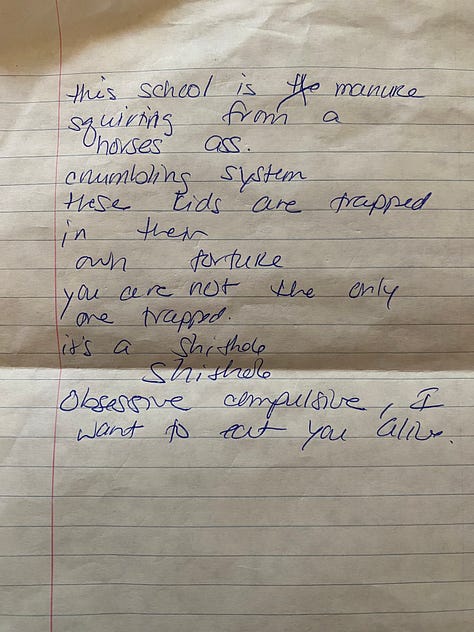 this school is the manure
squirting from a
horses ass.
crumbling system
these kids are trapped
in their
own torture
you are not the only
one trapped.
it's a shithole
shithole
Obsessive compulsive, I
want to eat you alive.